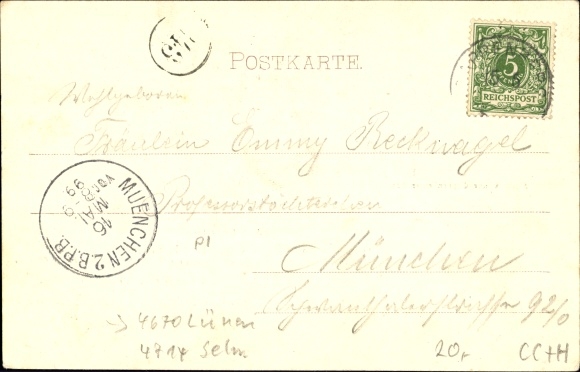 POSTKARTE.
5
REICHSPOST
Wohlgeboren
Fräulein Emmy Recknagel
Professorstöchterchen
München
Schwanthalerstrasse 92/0
MUENCHEN 2.B.P.B.
16 MAI
8-9
Vor.
99
Pl
→ 4670 Lünen
4714 Selm
20,-
CC+H